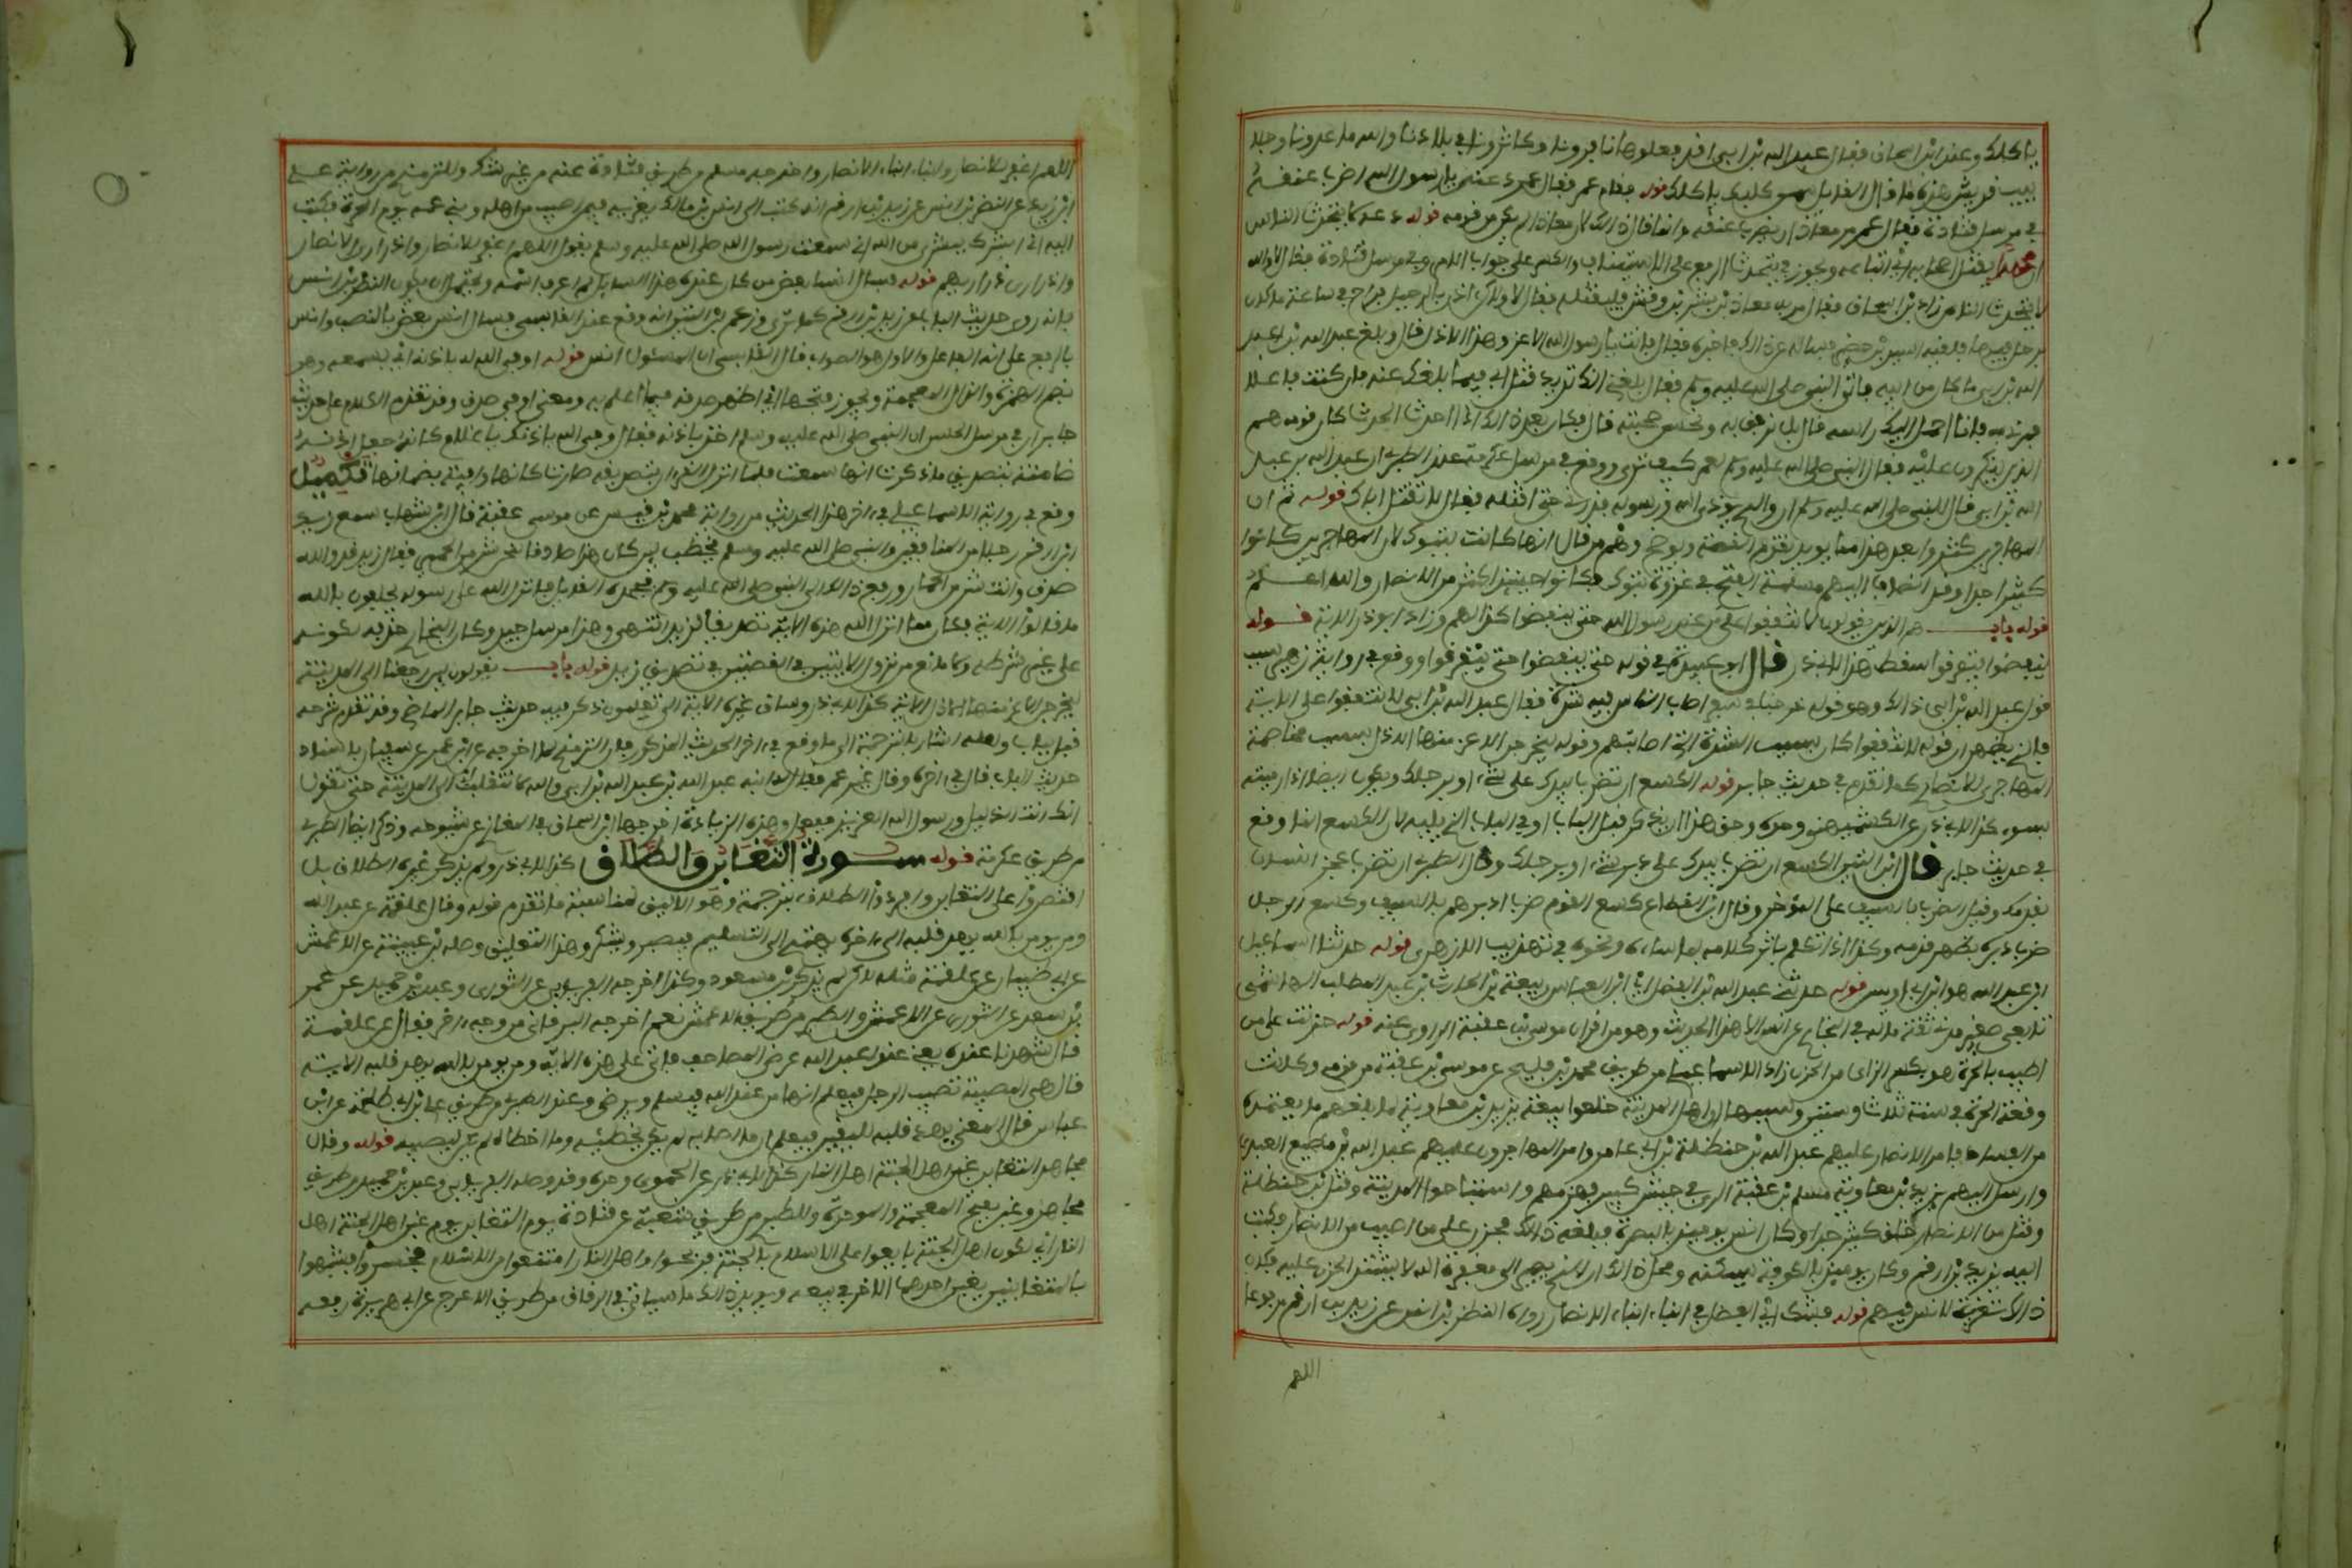 ياكلك وعند ابن اسحاق فقال عبد الله بن ابي اقد فعلوها نافرونا وكاثرونا في بلادنا والله ما عدونا وجلا
بيب قريش هذه ما قال القايل سمن كلبك ياكلك قوله فقام عمر فقال عمر دعني يا رسول الله اضرب عنقه
في مرسل قتادة فقال عمر مر معاذا ان يضرب عنقه وانما قال ذالك لان معاذا لم يكن من قومه قوله دعه لا يتحدث الناس
ان محمدا يقتل اصحابه اي اتباعه ويجوز في يتحدث الرفع على الاستيناف والكسر على جواب الامر وفي مرسل قتادة فقال لا والله
لا يتحدث الناس زاد ابن اسحاق فقال مر به معاذ بن بشر بن وقش فليقتله فقال لا ولاكن اذن بالرحيل فراح في ساعة ما كان
يرحل فيها فلقيه اسيد بن حضير فساله عن ذالك فاخبره فقال فانت يا رسول الله الاعز وهذا الاذل قال وبلغ عبد الله بن عبد
الله بن ابي ما كان من ابيه فاتى النبي صلى الله عليه وسلم فقال بلغني انك تريد قتل ابي فيما بلغك عنه فان كنت فاعلا
فمرني به فانا احمل اليك راسه قال بل ترفق به وتحسن صحبته قال فكان بعد ذالك اذا احدث الحدث كان قومه هم
الذين ينكرون عليه فقال النبي صلى الله عليه وسلم لعمر كيف ترى ووقع في مرسل عكرمة عند الطبري ان عبد الله بن عبد
الله بن ابي قال للنبي صلى الله عليه وسلم ان والدي يوذي الله ورسوله فذرني حتى اقتله فقال لا تقتل اباك قوله ثم ان
المهاجرين كثروا بعد هذا مما يويد تقدم القصة ويوضح وهم من قال انها كانت بتبوك لان المهاجرين كانوا
كثيرا جدا وقد انضاف اليهم مسلمة الفتح في غزوة تبوك فكانوا حينيذ اكثر من الانصار والله اعلم
قوله باب هم الذين يقولون لا تنفقوا على من عند رسول الله حتى ينفضوا كذا لهم وزاد ابو ذر الاية قوله
ينفضوا يتفرقوا سقط هذا لابي ذر قال ابو عبيدة في قوله حتى ينفضوا حتى يتفرقوا ووقع في رواية زهير سبب
قول عبد الله بن ابي ذالك وهو قوله خرجنا في سفر اصاب الناس فيه شدة فقال عبد الله بن ابي لا تنفقوا على الاية
فالذي يظهر ان قوله لا تنفقوا كان بسبب الشدة التي اصابتهم وقوله ليخرجن الاعز منها الاذل بسبب مخاصمة
المهاجري للانصاري كما تقدم في حديث جابر قوله الكسع ان تضرب بيدك على شيء او برجلك ويكون ايضا اذا رميته
بسوء كذا لابي ذر عن الكشميهني وحده وحق هذا ان يذكر قبل الباب او في الباب الذي يليه لان الكسع انما وقع
في حديث جابر قال ابن التين الكسع ان تضرب بيدك على دبر شيء او برجلك وقال الطبري ان تضرب عجز انسان
بقدمك وقيل الضرب بالسيف على الموخر وقال ابن القطاع كسع القوم ضرب ادبارهم بالسيف وكسع الرجل
ضرب دبره بظهر قدمه وكذا اذا تكلم باثر كلامه بما ساءه ونحوه في تهذيب الازهري قوله حدثنا اسماعيل
ابن عبد الله هو ابن ابي اويس قوله حدثني عبد الله بن الفضل اي ابن العباس بن ربيعة بن الحارث بن عبد المطلب الهاشمي
تابعي صغير مدني ثقة ماله في البخاري عن انس الا هذا الحديث وهو من اقران موسى بن عقبة الراوي عنه قوله حزنت على من
اصيب بالحرة هو بكسر الزاي من الحزن زاد الاسماعيلي من طريق محمد بن فليح عن موسى بن عقبة من قومي وكانت
وقعة الحرة في سنة ثلاث وستين وسببها ان اهل المدينة خلعوا بيعة يزيد بن معاوية لما بلغهم ما يتعمده
من الفساد فامر الانصار عليهم عبد الله بن حنظلة بن ابي عامر وامر المهاجرون عليهم عبد الله بن مطيع العدوي
وارسل اليهم يزيد بن معاوية مسلم بن عقبة المري في جيش كثير فهزمهم واستباحوا المدينة وقتل ابن حنظلة
وقتل من الانصار خلق كثير جدا وكان انس يوميذ بالبصرة فبلغه ذالك فحزن على من اصيب من الانصار فكتب
اليه زيد بن ارقم وكان يوميذ بالكوفة يسليه ومحصل ذالك ان الذي يصير الى مغفرة الله لا يشتد الحزن عليه فكان
ذالك تعزية لانس فيهم قوله فشك ابن الفضل في ابناء ابناء الانصار رواه النضر بن انس عن زيد بن ارقم مرفوعا
اللهم
اللهم اغفر للانصار ولابناء ابناء الانصار واخرجه مسلم من طريق قتادة عنه من غير شك وللترمذي من رواية علي
ابن زيد عن النضر بن انس عن زيد بن ارقم انه كتب الى انس بن مالك يعزيه فيمن اصيب من اهله وبني عمه يوم الحرة فكتب
اليه اني ابشرك ببشرى من الله اني سمعت رسول الله صلى الله عليه وسلم يقول اللهم اغفر للانصار ولذراري الانصار
ولذراري ذراريهم قوله فسال انسا بعض من كان عنده هذا السايل لم اعرف اسمه ويحتمل ان يكون النضر بن انس
فانه روى حديث الباب عن زيد بن ارقم كما ترى وزعم ابن التين انه وقع عند القابسي فسال انس بعض بالنصب وانس
بالرفع على انه الفاعل والاول هو الصواب قال القابسي ان المسئول انس قوله اوفى الله له باذنه اي بسمعه وهو
بضم الهمزة والذال المعجمة ويجوز فتحهما اي اظهر صدقه فيما اعلم به ومعنى اوفى صدق وقد تقدم الكلام على حديث
جابر ان في مرسل الحسن ان النبي صلى الله عليه وسلم اخذ باذنه فقال وفى الله باذنك يا غلام كانه جعل اذنه
ضامنة بتصديق ما ذكرت انها سمعت فلما نزل القرءان بتصديقه صارت كانها وافية بضمانها تكميل
وقع في رواية الاسماعيلي في ءاخر هذا الحديث من رواية محمد بن فليح عن موسى بن عقبة قال ابن شهاب سمع زيد
ابن ارقم رجلا من المنافقين والنبي صلى الله عليه وسلم يخطب لين كان هذا صادقا لنحن شر من الحمير فقال زيد قد والله
صدق ولانت شر من الحمار ورفع ذالك الى النبي صلى الله عليه وسلم فجحده القايل فانزل الله على رسوله يحلفون بالله
ما قالوا الاية فكان مما انزل الله هذه الاية تصديقا لزيد انتهى وهذا مرسل جيد وكان البخاري حذفه لكونه
على غير شرطه ولا مانع من نزول الايتين في القصتين في تصديق زيد قوله باب يقولون لين رجعنا الى المدينة
ليخرجن الاعز منها الاذل الاية كذا لابي ذر وساق غيره الاية الى يعلمون ذكر فيه حديث جابر الماضي وقد تقدم شرحه
قبل بباب ولعله اشار بالترجمة الى ما وقع في ءاخر الحديث المذكور فان الترمذي لما اخرجه عن ابن ابي عمر عن سفيان باسناد
حديث الباب قال في ءاخره وقال غير عمر فقال له ابنه عبد الله بن عبد الله بن ابي والله لا تنقلب الى المدينة حتى تقول
انك انت الذليل ورسول الله العزيز ففعل وهذه الزيادة اخرجها ابن اسحاق في المغازي عن شيوخه وذكرها ايضا الطبري
من طريق عكرمة قوله سورة التغابن والطلاق كذا لابي ذر ولم يذكر غيره الطلاق بل
اقتصروا على التغابن وافردوا الطلاق بترجمة وهو الاليق لمناسبة ما تقدم قوله وقال علقمة عن عبد الله
ومن يومن بالله يهد قلبه الى ءاخره يهتدي الى التسليم فيصبر ويشكر وهذا التعليق وصله ابن عيينة عن الاعمش
عن ابي ظبيان عن علقمة مثله لاكن لم يذكر ابن مسعود وكذا اخرجه الفريابي عن الثوري وعبد بن حميد عن عمر
بن سعد عن الثوري عن الاعمش والطبري من طريق عن الاعمش نعم اخرجه البرقاني من وجه ءاخر فقال عن علقمة
قال شهدنا عنده يعني عند عبد الله عرض المصاحف فاتى على هذه الاية ومن يومن بالله يهد قلبه الاية
قال هي المصيبة تصيب الرجل فيعلم انها من عند الله فيسلم ويرضى وعند الطبري من طريق علي بن ابي طلحة عن ابن
عباس قال المعنى يهدي قلبه لليقين فيعلم ان ما اصابه لم يكن ليخطئه وما اخطاه لم يكن ليصيبه قوله وقال
مجاهد التغابن غبن اهل الجنة اهل النار كذا لابي ذر عن الحموي وحده وقد وصله الفريابي وعبد بن حميد من طريق
مجاهد وغبن بفتح المعجمة والموحدة وللطبري من طريق شعبة عن قتادة يوم التغابن يوم غبن اهل الجنة اهل
النار اي لكون اهل الجنة بايعوا على الاسلام بالجنة فربحوا واهل النار امتنعوا من الاسلام فخسروا فشبهوا
بالمتبايعين يغبن احدهما الاخر في بيعه ويويد ذالك ما سياتي في الرقاق من طريق الاعرج عن ابي هريرة رفعه